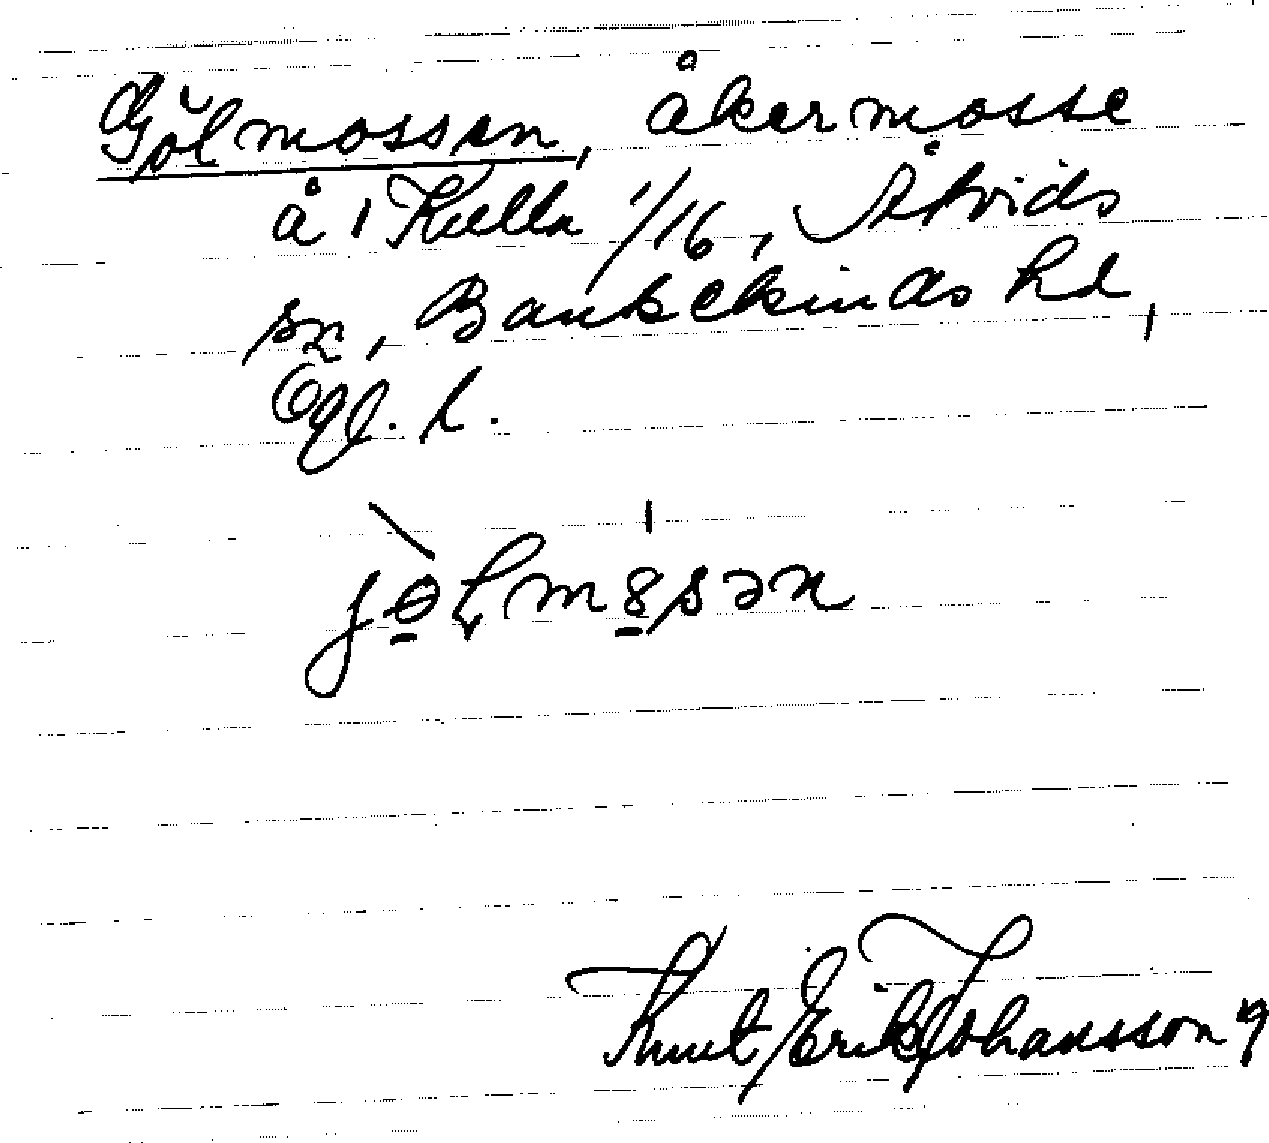 Gölmossen, åkermosse
å 1 Kulla 1/16, Åtvids
sn, Bankekinds hd,
Ögl. l.
jɵlmɞsən
Knut Erik Johansson